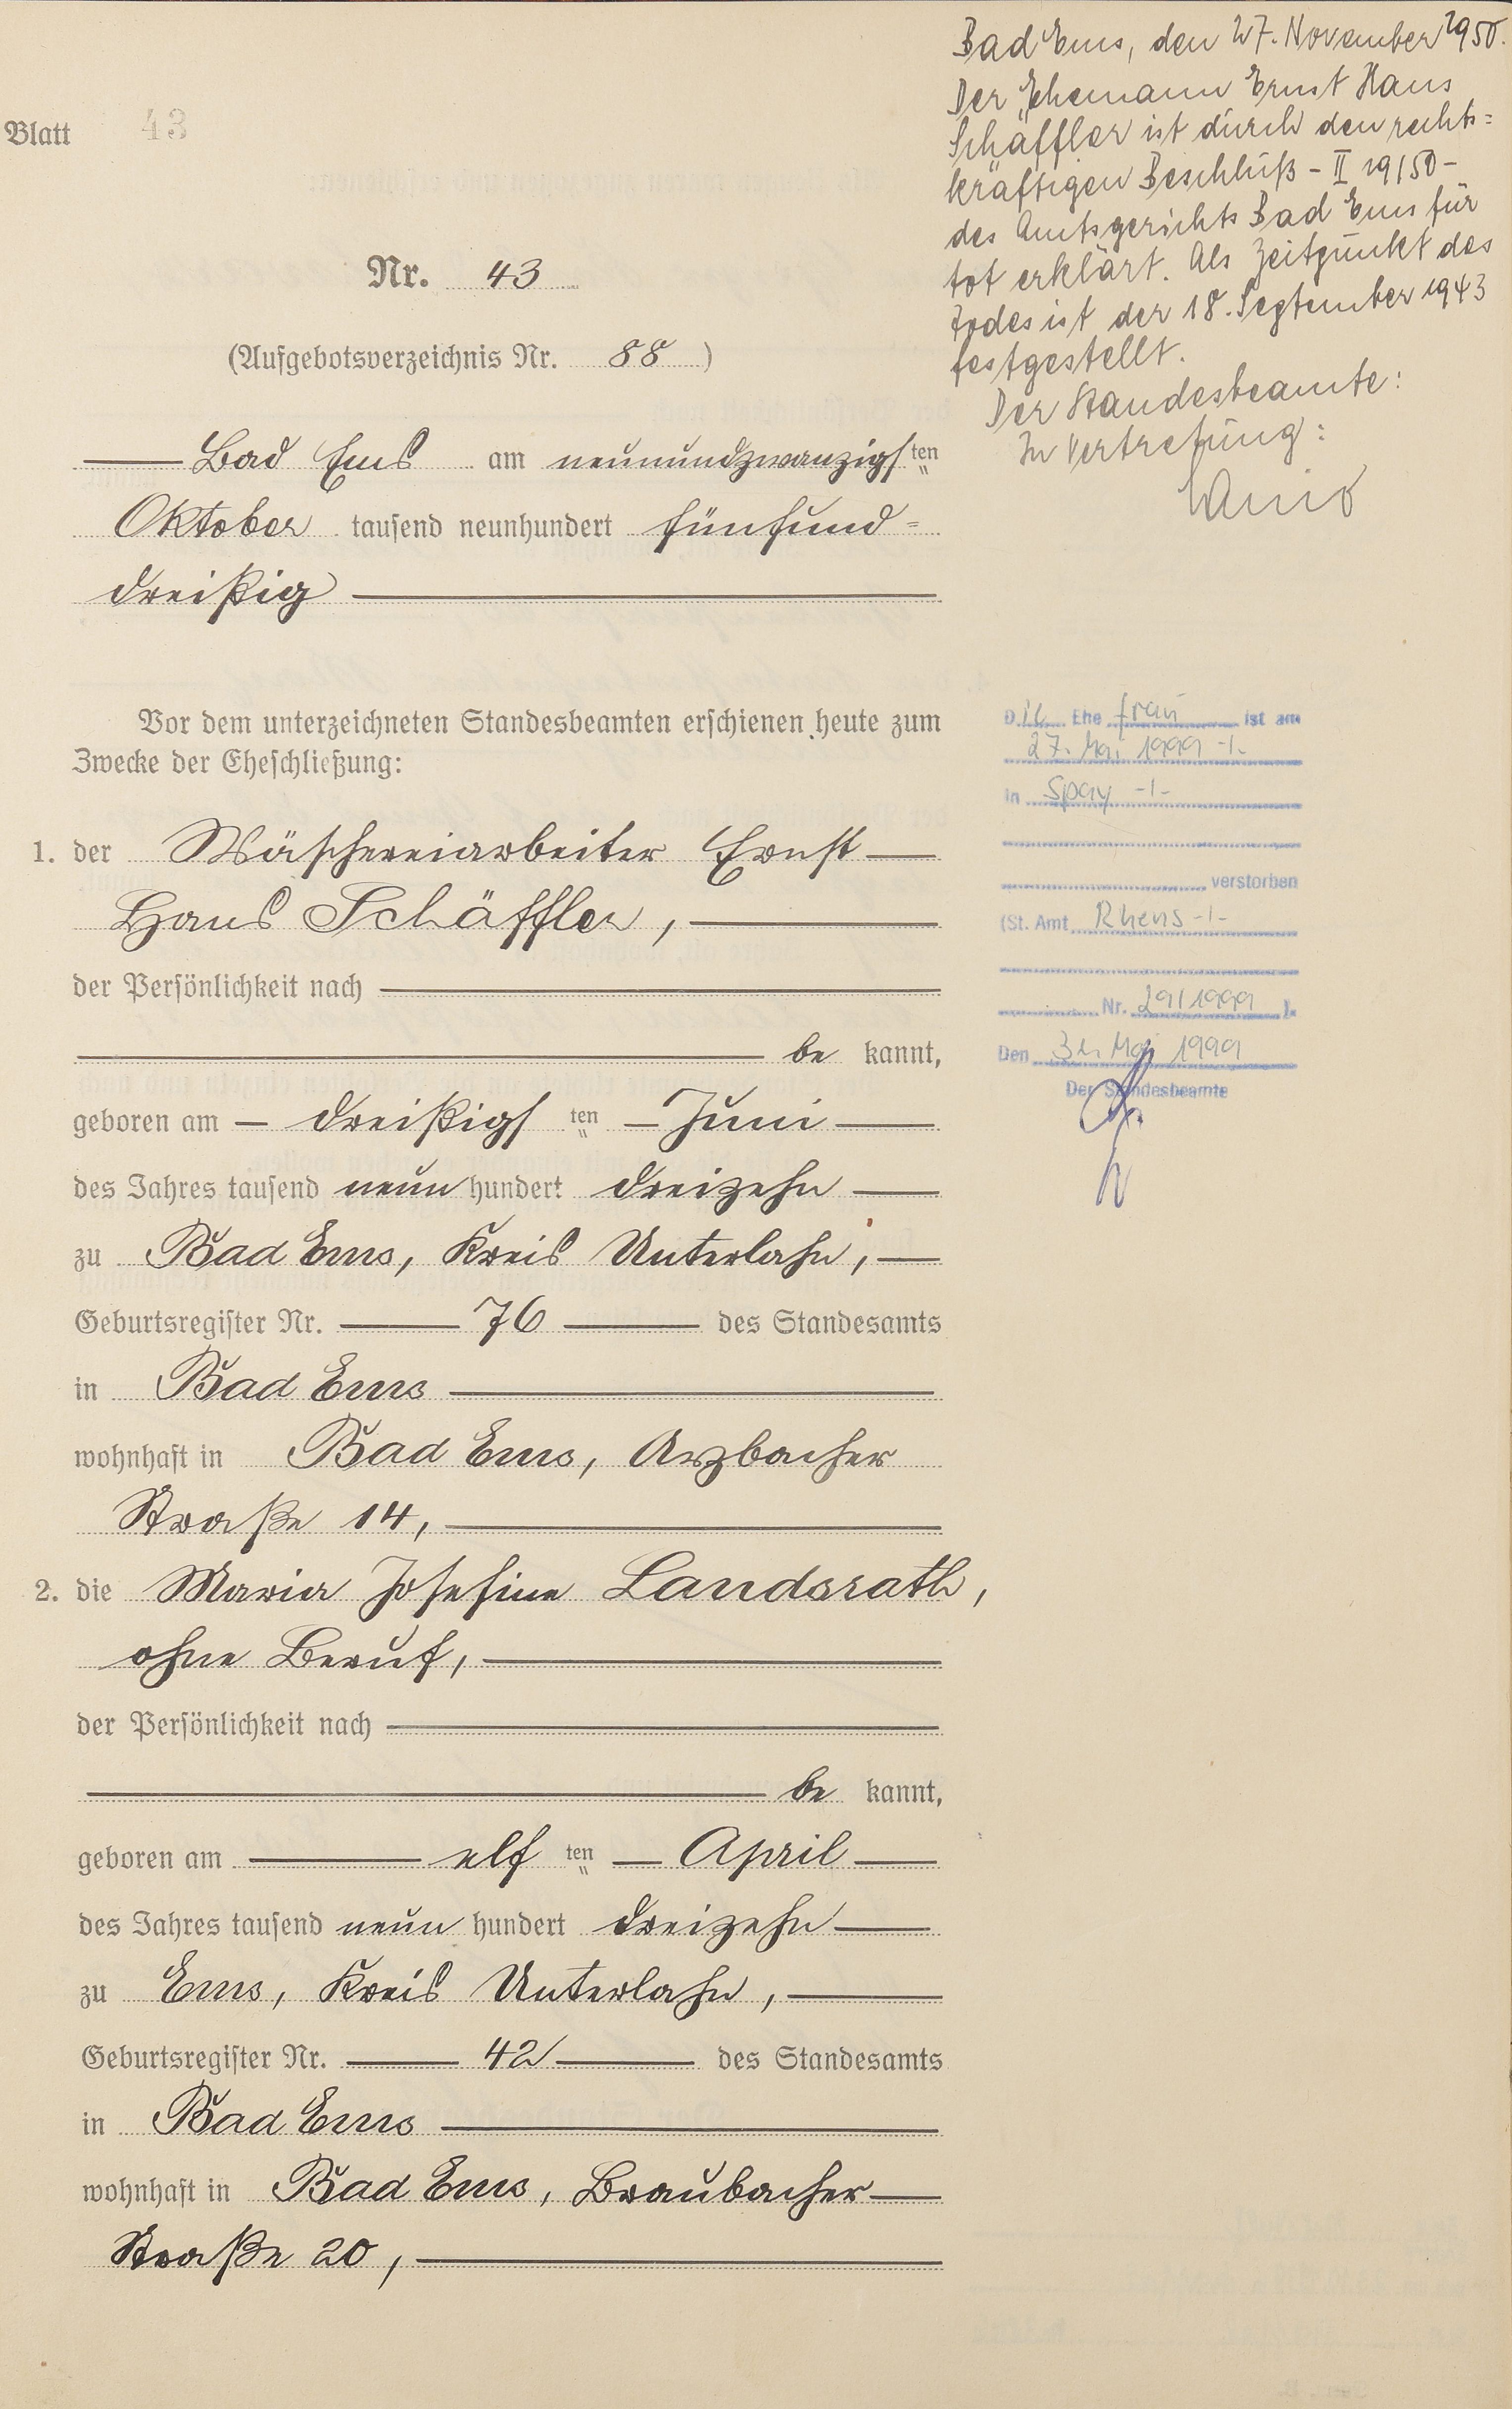 Blatt 43
Nr. 43
(Aufgebotsverzeichnis Nr. 88)
Bad Ems am neunundzwanzigsten
Oktober tausend neunhundert fünfund=
dreißig
Vor dem unterzeichneten Standesbeamten erschienen heute zum
Zwecke der Eheschließung:
1. der Wäschereiarbeiter Ernst
Hans Schäffler,
der Persönlichkeit nach
be kannt,
geboren am dreißigsten Juni
des Jahres tausend neun hundert dreizehn
zu Bad Ems, Kreis Unterlahn,
Geburtsregister Nr. 76 des Standesamts
in Bad Ems
wohnhaft in Bad Ems, Arzbacher
Straße 14,
2. die Maria Josefine Landsrath,
ohne Beruf,
der Persönlichkeit nach
be kannt,
geboren am elften April
des Jahres tausend neun hundert dreizehn
zu Ems, Kreis Unterlahn,
Geburtsregister Nr. 42 des Standesamts
in Bad Ems
wohnhaft in Bad Ems, Braubacher
Straße 20,
Bad Ems, den 27. November 1950.
Der Ehemann Ernst Hans
Schäffler ist durch den rechts=
kräftigen Beschluß - II 19/50 -
des Amtsgerichts Bad Ems für
tot erklärt. Als Zeitpunkt des
Todes ist der 18. September 1943
festgestellt.
Der Standesbeamte:
In Vertretung:
Die Ehe frau ist am
27. Mai 1999 -/-
in Spay -/-
verstorben
(St. Amt Rhens -/-
Nr. 29/1999 ).
Den 31. Mai 1999
Der Standesbeamte